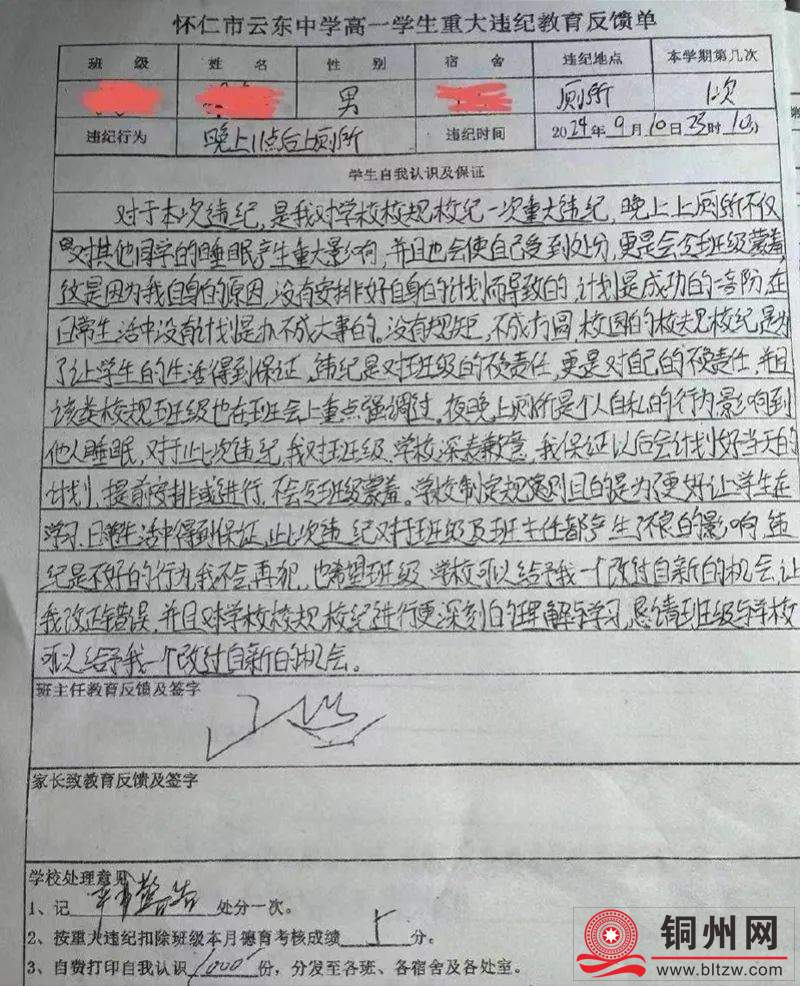 怀仁市云东中学高一学生重大违纪教育反馈单
班 级 姓 名 性 别 宿 舍 违纪地点 本学期第几次
男 厕所 1次
违纪行为 晚上11点后上厕所 违纪时间 2024年9月10日23时10分
学生自我认识及保证
对于本次违纪,是我对学校校规校纪一次重大违纪,晚上上厕所不仅
对其他同学的睡眠产生重大影响,并且也会使自己受到处分,更是会令班级蒙羞,
这是因为我自身的原因,没有安排好自身的计划而导致的,计划是成功的一阶,在
日常生活中没有计划是办不成大事的。没有规矩,不成方圆,校园的校规校纪是为
了让学生的生活得到保证,违纪是对班级的不负责任,更是对自己的不负责任,并且
该类校规班级也在班会上重点强调过。夜晚上厕所是个人自私的行为影响到
他人睡眠,对于此次违纪,我对班级、学校深表歉意,我保证以后会计划好当天的
计划,提前安排或进行,不会令班级蒙羞。学校制定规则目的是为了更好让学生在
学习、日常生活中得到保证,此次违纪对于班级及班主任都产生了不良的影响,违
纪是不好的行为我不会再犯,也希望班级、学校可以给予我一个改过自新的机会,让
我改正错误,并且对学校校规、校纪进行更深刻的理解与学习,恳请班级与学校
可以给予我一个改过自新的机会。
班主任教育反馈及签字
家长致教育反馈及签字
学校处理意见
1、记 警告 处分一次。
2、按重大违纪扣除班级本月德育考核成绩 5 分。
3、自费打印自我认识 1000 份,分发至各班、各宿舍及各处室。
铜州网
www.bltzw.com